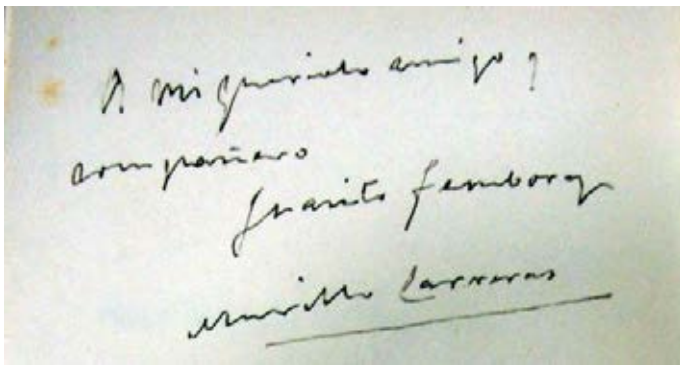 A mi querido amigo y
compañero
Juanito
Murillo Carreras